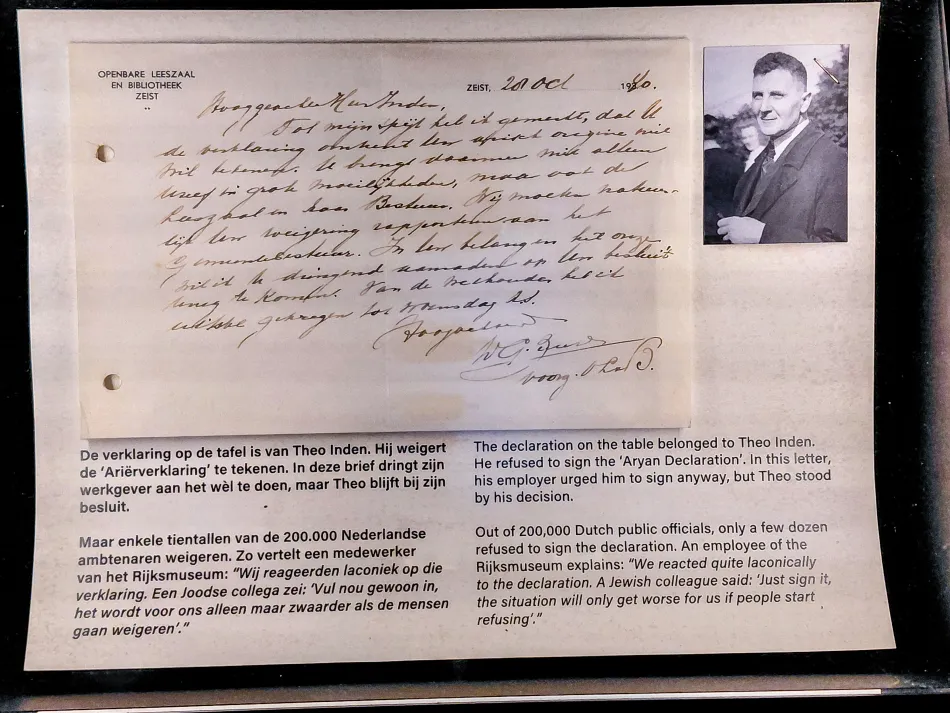 OPENBARE LEESZAAL
EN BIBLIOTHEEK
ZEIST
ZEIST, 28 Oct 1940.
Hooggeachte Heer Inden,
Tot mijn spijt heb ik gemerkt, dat U
de verklaring omtrent Uw arisch origine niet
wil tekenen. U brengt daarmee niet alleen
Uzelf in grote moeilijkheden, maar ook de
Leeszaal en haar Bestuur. Wij moeten natuur-
lijk Uw weigering rapporteren aan het
Gemeentebestuur. In Uw belang en het onze
wil ik U dringend aanraden op Uw besluit
terug te komen. Van de Wethouder heb ik
uitstel gekregen tot Woensdag a.s.
Hoogachtend
W.G.
voorg.
De verklaring op de tafel is van Theo Inden. Hij weigert
de ‘Ariërverklaring’ te tekenen. In deze brief dringt zijn
werkgever aan het wèl te doen, maar Theo blijft bij zijn
besluit.
Maar enkele tientallen van de 200.000 Nederlandse
ambtenaren weigeren. Zo vertelt een medewerker
van het Rijksmuseum: “Wij reageerden laconiek op die
verklaring. Een Joodse collega zei: ‘Vul nou gewoon in,
het wordt voor ons alleen maar zwaarder als de mensen
gaan weigeren’.”
The declaration on the table belonged to Theo Inden.
He refused to sign the ‘Aryan Declaration’. In this letter,
his employer urged him to sign anyway, but Theo stood
by his decision.
Out of 200,000 Dutch public officials, only a few dozen
refused to sign the declaration. An employee of the
Rijksmuseum explains: “We reacted quite laconically
to the declaration. A Jewish colleague said: ‘Just sign it,
the situation will only get worse for us if people start
refusing’.”